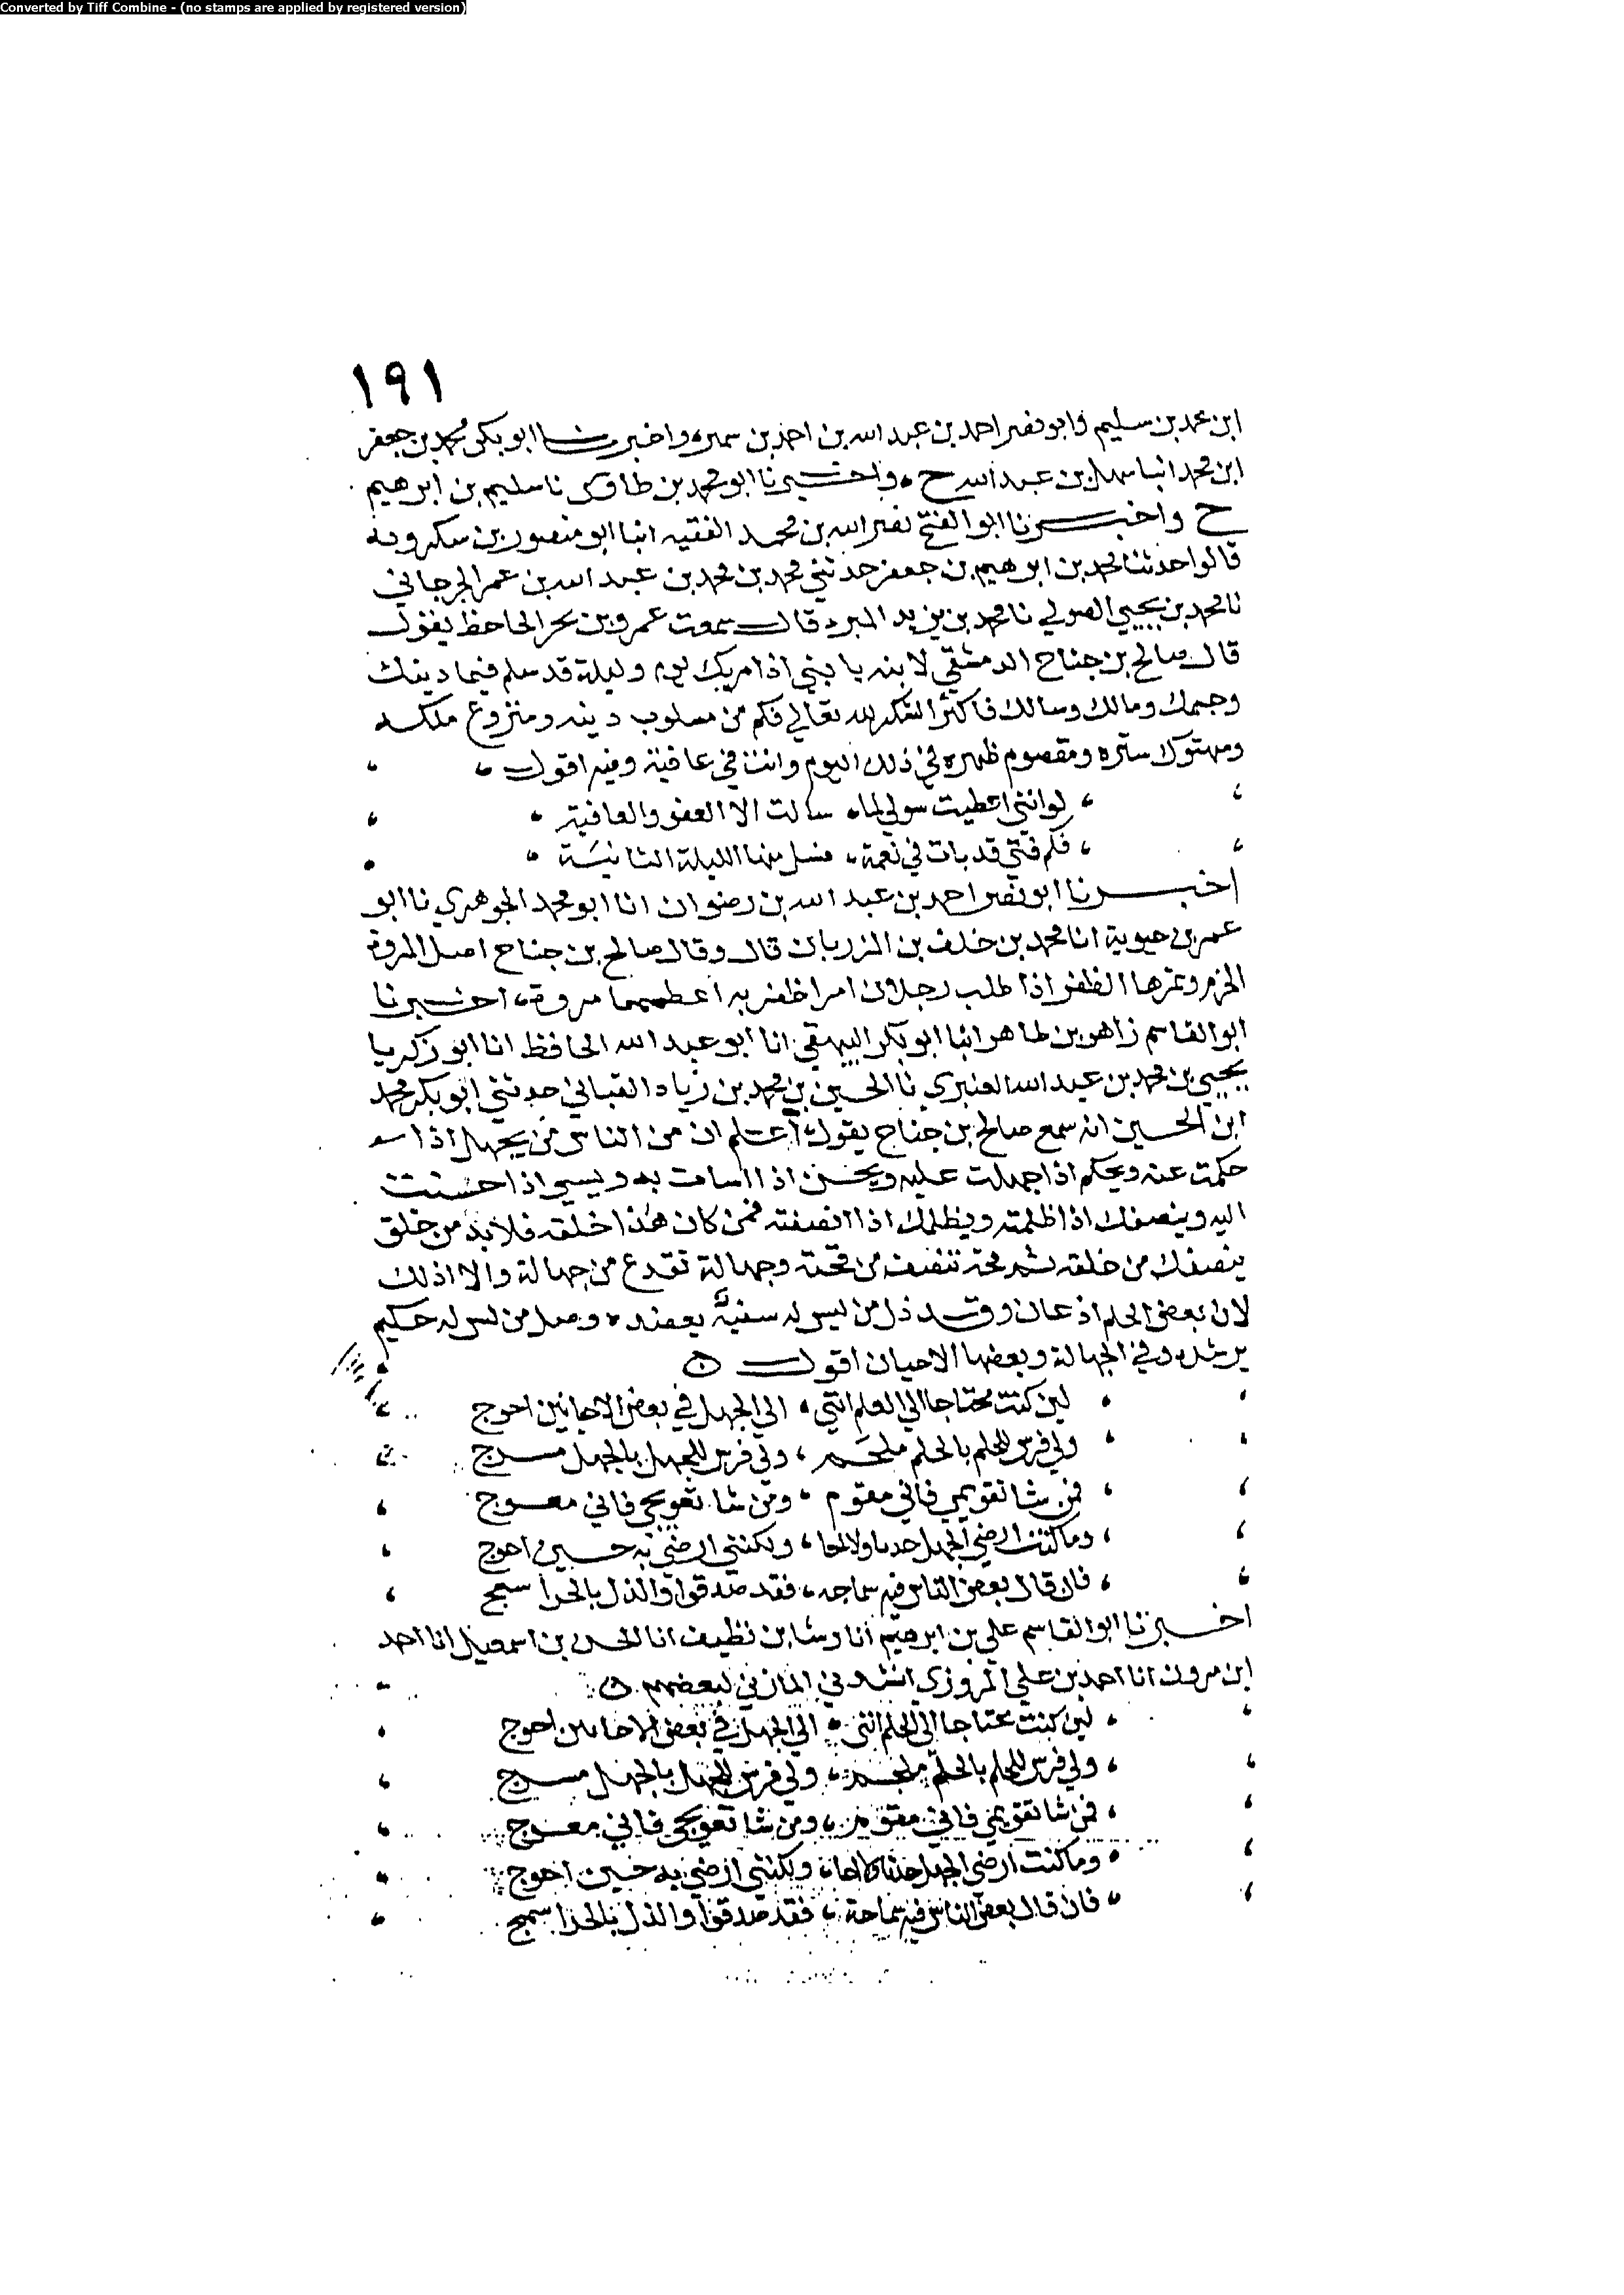 Converted by Tiff Combine - (no stamps are applied by registered version)
١٩١
ابن محمد بن سليم وابو نصر احمد بن عبد الله بن احمد بن سمير واخبرنا ابو بكر محمد بن جعفر
ابن محمد انبا سهل بن عبد الله ح واخبرنا ابو محمد بن طاوس نا سليم بن ابرهيم
ح واخبرنا ابو الفتح نصر الله بن محمد الفقيه انبا ابو منصور بن سكرويه
قالوا حدثنا محمد بن ابرهيم بن جعفر حدثني محمد بن محمد بن عبد الله بن عمر الجرجاني
نا محمد بن يحيي الصولي نا محمد بن يزيد المبرد قال سمعت عمرو بن بحر الجاحظ يقول
قال صالح بن جناح الدمشقي لابنه يا بني اذا مر بك يوم وليلة قد سلم فيها دينك
وجسمك ومالك وعيالك فاكثر الشكر لله تعالي فكم من مسلوب دينه ومنزوع ملكه
ومهتوك ستره ومقصوم ظهره في ذلك اليوم وانت في عافية وفيه اقول
لو انني اعطيت سولي لما سالت الا العفو والعافيه
فكم فتي قد بات في نعمة فسل منها الليلة الثانية
اخبرنا ابو نصر احمد بن عبد الله بن رضوان انا ابو محمد الجوهري نا ابو
عمر بن حيوية انا محمد بن خلف بن المرزبان قال وقال صالح بن جناح اصل المروة
الحزم وثمرها الظفر اذا طلب رجلان امرا ظفر به اعظمهما مروة اخبرنا
ابو القاسم زاهر بن طاهر انبا ابو بكر البيهقي انا ابو عبد الله الحافظ انا ابو زكريا
يحيي بن محمد بن عبد الله العنبري نا الحسين بن محمد بن زياد القباني حدثني ابو بكر محمد
ابن الحسين انه سمع صالح بن جناح يقول اعلم ان من الناس من يجهل اذا
حلمت عنه ويحلم اذا جهلت عليه ويحسن اذا اسات به ويسي اذا احسنت
اليه وينصفك اذا ظلمته ويظلمك اذا انصفته فمن كان هذا خلقه فلا بد من خلق
ينصفك من خلقه ثم قحة تنصف من قحته وجهالة تقدع من جهالة والا اذلك
لان بعض الحلم اذعان وقد ذل من ليس له سفيه يعضده وضل من ليس له حكيم
يرشده وفي الجهالة وبعضها الاحيان اقول
لين كنت محتاجا الي العلم انني الي الجهل في بعض الاحايين احوج
ولي فرس للحلم بالحلم ملجم ولي فرس للجهل بالجهل مسرج
فمن شا تقويمي فاني مقوم ومن شا تعويجي فاني معوج
وما كنت ارضي الجهل خدنا ولا اخا ولكنني ارضي به حين احوج
فان قال بعض الناس فيه سماجه فقد صدقوا والذل بالحر اسمج
اخبرنا ابو القاسم علي بن ابرهيم انا رشا بن نظيف انا الحسن بن اسمعيل انا احمد
ابن مروان انا احمد بن علي المروزي انشدني المازني لبعضهم
لين كنت محتاجا الي الحلم انني الي الجهل في بعض الاحايين احوج
ولي فرس للحلم بالحلم ملجم ولي فرس للجهل بالجهل مسرج
فمن شا تقويمي فاني مقوم ومن شا تعويجي فاني معوج
وما كنت ارضي الجهل خدنا ولا اخا ولكنني ارضي به حين احوج
فان قال بعض الناس فيه سماجة فقد صدقوا والذل بالحر اسمج